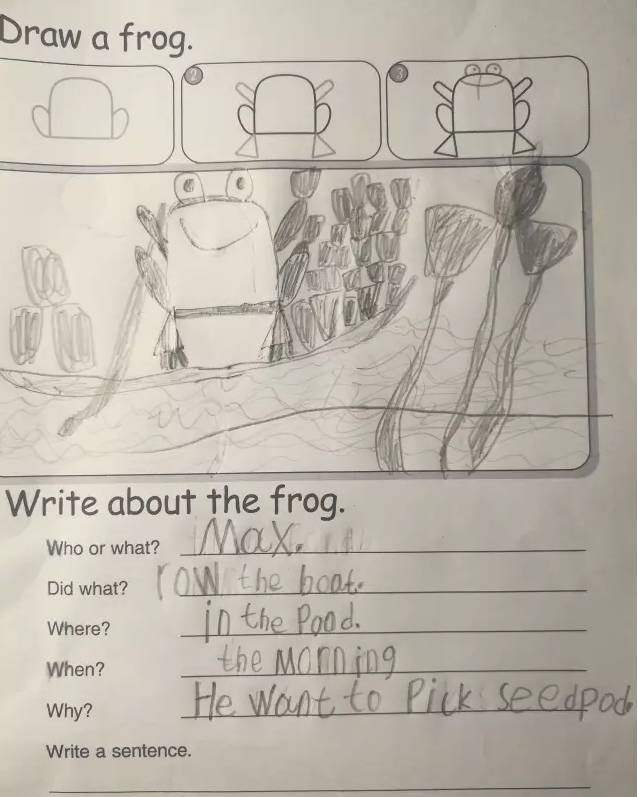 Draw a frog.
2
3
Write about the frog.
Who or what? Max.
Did what? row the boat.
Where? in the Pood.
When? the Morning
Why? He want to Pick seedpod.
Write a sentence.